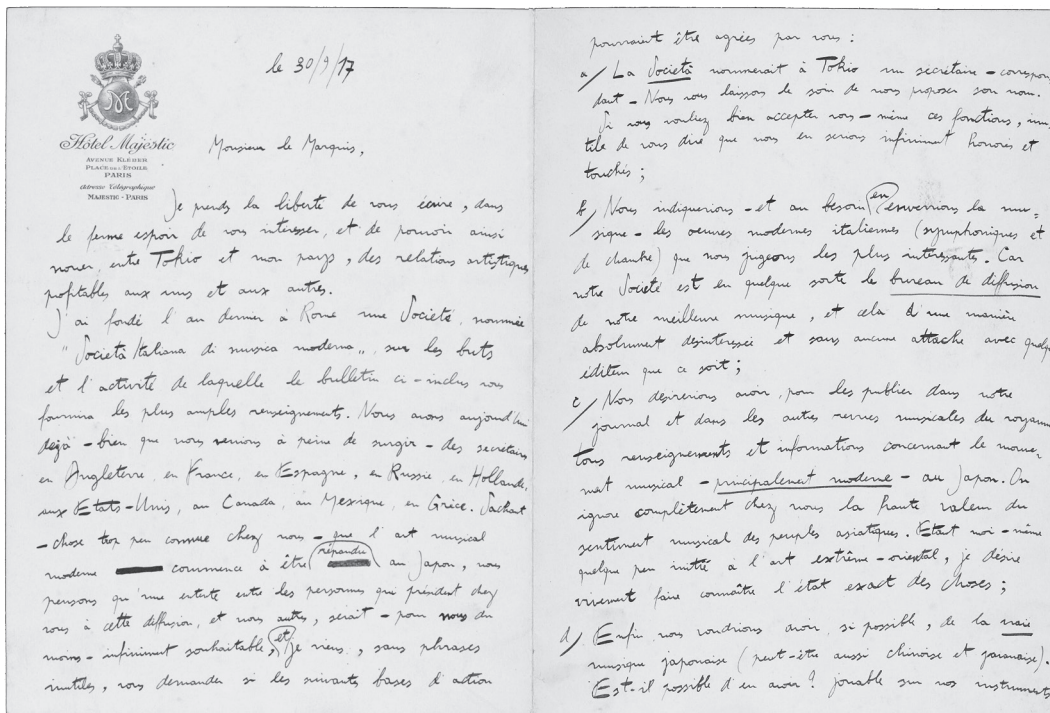 le 30/9/17
M
Hôtel Majestic
AVENUE KLÉBER
PLACE DE L'ÉTOILE
PARIS
Adresse Télégraphique
MAJESTIC - PARIS
Monsieur le Marquis,
Je prends la liberté de vous écrire, dans
le ferme espoir de vous intéresser, et de pouvoir ainsi
nouer, entre Tokio et mon pays, des relations artistiques
profitables aux uns et aux autres.
J'ai fondé l'an dernier à Rome une Société, nommée
"Società Italiana di musica moderna", sur les buts
et l'activité de laquelle le bulletin ci-inclus vous
fournira les plus amples renseignements. Nous avons aujourd'hui
déjà - bien que nous venions à peine de surgir - des secrétaires
en Angleterre, en France, en Espagne, en Russie, en Hollande,
aux Etats-Unis, au Canada, au Mexique, en Grèce. Sachant
- chose trop peu connue chez nous - que l'art musical
moderne commence à être répandu au Japon, nous
pensons qu'une entente entre les personnes qui président chez
vous à cette diffusion, et nous autres, serait - pour nous du
moins - infiniment souhaitable, et je viens, sans phrases
inutiles, vous demander si les suivants bases d'action
pourraient être agréés par vous :
a/ La Società nommerait à Tokio un secrétaire - correspon
dant - Nous vous laissons le soin de nous proposer son nom.
Si vous vouliez bien accepter vous-même ces fonctions, inu-
tile de vous dire que nous en serions infiniment honorés et
touchés ;
b/ Nous indiquerions - et au besoin en enverrions la mu-
sique - les oeuvres modernes italiennes (symphoniques et
de chambre) que nous jugeons les plus intéressantes. Car
notre Société est en quelque sorte le bureau de diffusion
de notre meilleure musique, et cela d'une manière
absolument désintéressée et sans aucune attache avec quelqu
éditeur que ce soit ;
c/ Nous désirerions avoir, pour les publier dans notre
journal et dans les autres revues musicales du royaume
tous renseignements et informations concernant le mouve-
ment musical - principalement moderne - au Japon. On
ignore complètement chez nous la haute valeur du
sentiment musical des peuples asiatiques. Etant moi-même
quelque peu initié à l'art extrême-oriental, je désire
vivement faire connaître l'état exact des choses ;
d/ Enfin, nous voudrions avoir, si possible, de la vraie
musique japonaise (peut-être aussi chinoise et javanaise).
Est-il possible d'en avoir ? jouable sur nos instruments